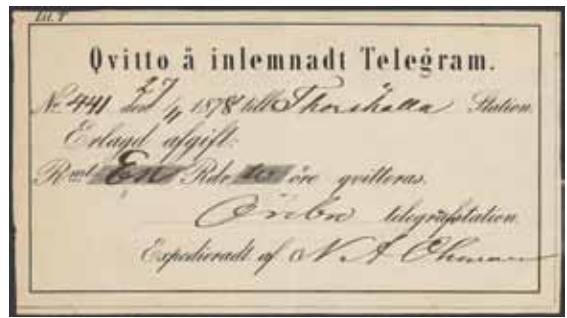 Lit. T
Qvitto å inlemnadt Telegram.
No 441 den 27/4 1878 till Thorshälla Station.
Erlagd afgift:
Rmt En Rdr tio öre qvitteras.
Örebro telegrafstation
Expedieradt af N. A.